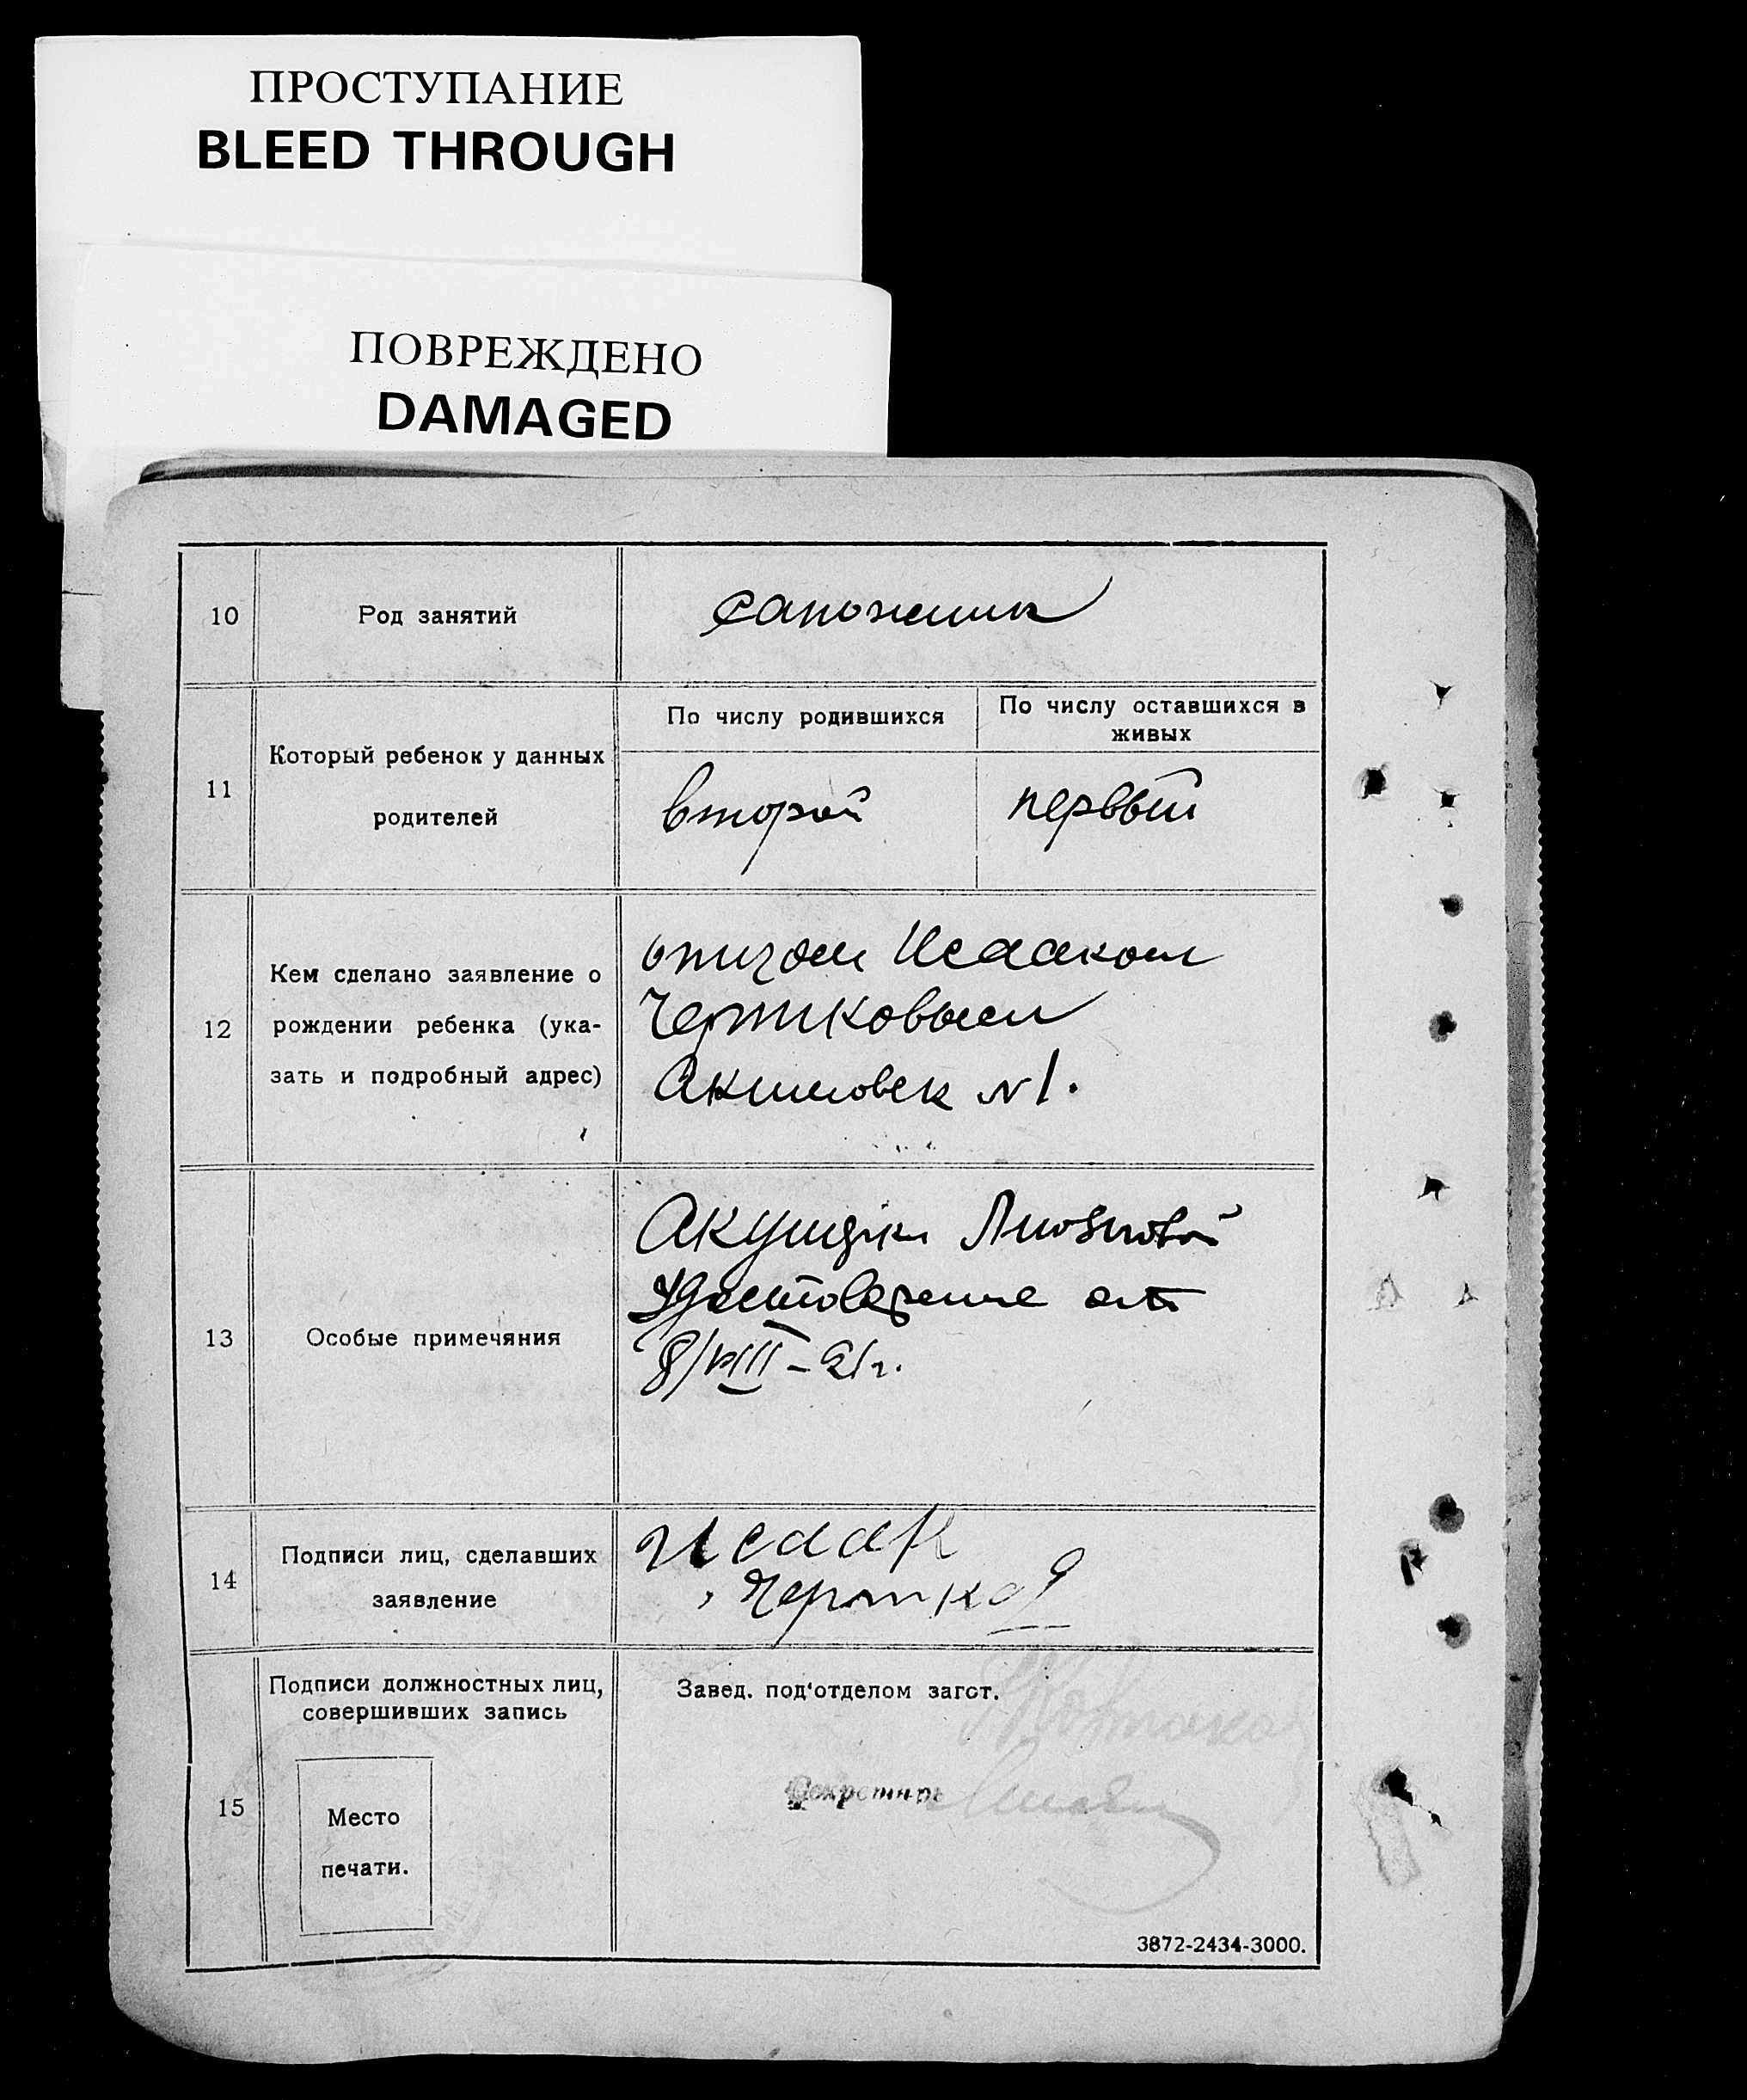 ПРОСТУПАНИЕ
BLEED THROUGH
ПОВРЕЖДЕНО
DAMAGED
10 Род занятий сапожник
11 Который ребенок у данных родителей
По числу родившихся
По числу оставшихся в живых
второй первый
12 Кем сделано заявление о
рождении ребенка (ука-
зать и подробный адрес)
отцом Исааком
Чертковым
№ 1.
13 Особые примечяния
Акушерки
Удостоверение от
8/VIII – 21 г.
14 Подписи лиц, сделавших
заявление
Исаак
Чертков
15 Подписи должностных лиц,
совершивших запись
Место
печати.
Завед. под‘отделом загст.
Секретарь
3872-2434-3000.